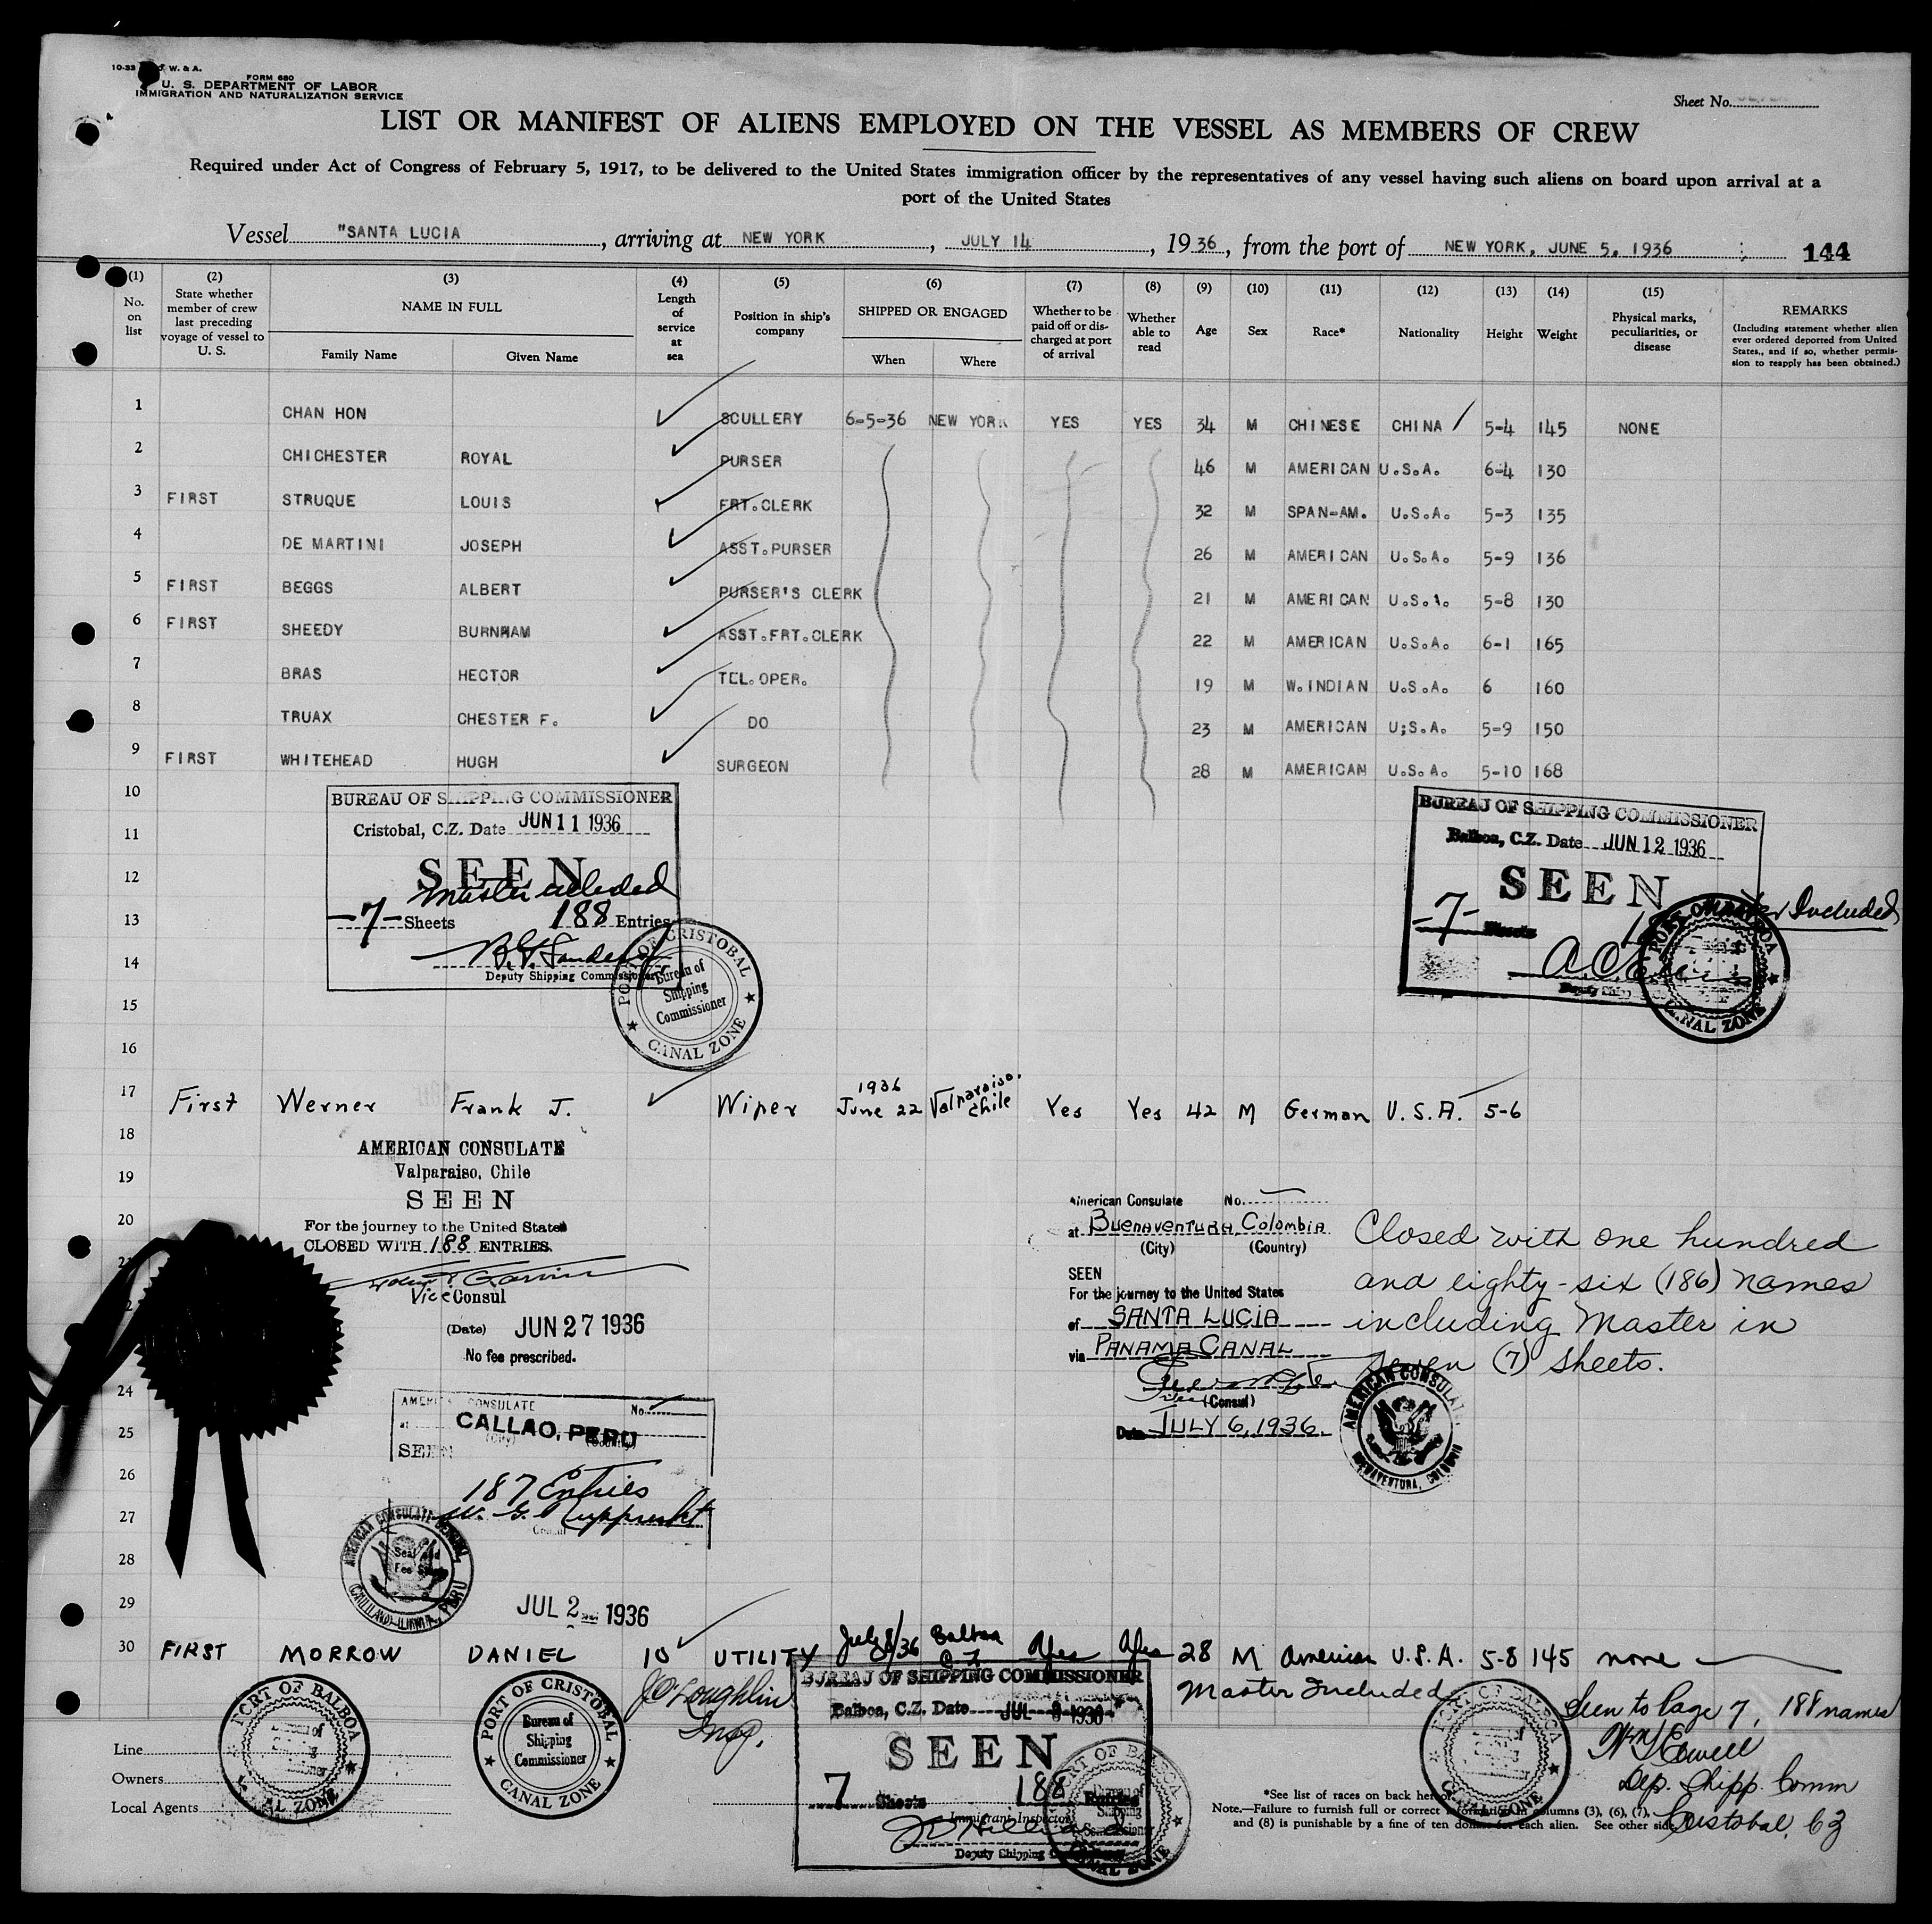 FORM 680
U. S. DEPARTMENT OF LABOR
IMMIGRATION AND NATURALIZATION SERVICE
Sheet No.
LIST OR MANIFEST OF ALIENS EMPLOYED ON THE VESSEL AS MEMBERS OF CREW
Required under Act of Congress of February 5, 1917, to be delivered to the United States immigration officer by the representatives of any vessel having such aliens on board upon arrival at a
port of the United States
Vessel "SANTA LUCIA, arriving at NEW YORK, JULY 14, 1936, from the port of NEW YORK, JUNE 5, 1936 144
(1) No. on list
(2) State whether member of crew last preceding voyage of vessel to U. S.
(3) NAME IN FULL Family Name Given Name
(4) Length of service at sea
(5) Position in ship's company
(6) SHIPPED OR ENGAGED When Where
(7) Whether to be paid off or discharged at port of arrival
(8) Whether able to read
(9) Age
(10) Sex
(11) Race*
(12) Nationality
(13) Height
(14) Weight
(15) Physical marks, peculiarities, or disease
REMARKS (Including statement whether alien ever ordered deported from United States, and if so, whether permission to reapply has been obtained.)
1 CHAN HON SCULLERY 6-5-36 NEW YORK YES YES 34 M CHINESE CHINA 5-4 145 NONE
2 CHICHESTER ROYAL PURSER 46 M AMERICAN U.S.A. 6-4 130
3 FIRST STRUQUE LOUIS FRT.CLERK 32 M SPAN-AM. U.S.A. 5-3 135
4 DE MARTINI JOSEPH ASST.PURSER 26 M AMERICAN U.S.A. 5-9 136
5 FIRST BEGGS ALBERT PURSER'S CLERK 21 M AMERICAN U.S.A. 5-8 130
6 FIRST SHEEDY BURNHAM ASST.FRT.CLERK 22 M AMERICAN U.S.A. 6-1 165
7 BRAS HECTOR TEL.OPER. 19 M W.INDIAN U.S.A. 6 160
8 TRUAX CHESTER F. DO 23 M AMERICAN U;S.A. 5-9 150
9 FIRST WHITEHEAD HUGH SURGEON 28 M AMERICAN U.S.A. 5-10 168
10
BUREAU OF SHIPPING COMMISSIONER
Cristobal, C.Z. Date JUN 11 1936
SEEN
Master included
-7- Sheets 188 Entries
Deputy Shipping Commissioner
PORT OF CRISTOBAL
Bureau of
Shipping
Commissioner
CANAL ZONE
BUREAU OF SHIPPING COMMISSIONER
Balboa, C.Z. Date JUN 12 1936
SEEN
-7- Sheets Included
PORT OF BALBOA
CANAL ZONE
11
12
13
14
15
16
17 First Werner Frank J. Wiper 1936 June 22 Valparaiso, Chile Yes Yes 42 M German U.S.A. 5-6
18
AMERICAN CONSULATE
Valparaiso, Chile
SEEN
For the journey to the United States
CLOSED WITH 188 ENTRIES.
Vice Consul
(Date) JUN 27 1936
No fee prescribed.
19
20
American Consulate No.
at Buenaventura, Colombia
(City) (Country)
SEEN
For the journey to the United States
of SANTA LUCIA
via PANAMA CANAL
(Consul)
Date JULY 6, 1936
Closed with one hundred
and eighty-six (186) names
including Master in
seven (7) sheets.
AMERICAN CONSULATE
BUENAVENTURA, COLOMBIA
24
25
AMERICAN CONSULATE No.
at CALLAO, PERU
(City) (Country)
SEEN
187 Entries
JUL 2 1936
26
27
28
29
30 FIRST MORROW DANIEL 10 UTILITY July 8/36 Balboa C Z Yes Yes 28 M American U.S.A. 5-8 145 none
J O'Loughlin
Insp.
Master Included
Seen to Page 7, 188 names
Dep. Shipp. Comm
Cristobal, CZ
PORT OF BALBOA
CANAL ZONE
PORT OF CRISTOBAL
Bureau of
Shipping
Commissioner
CANAL ZONE
BUREAU OF SHIPPING COMMISSIONER
Balboa, C.Z. Date JUL 8 1936
SEEN
7 Sheets 188 Entries
Immigrant Inspector
Deputy Shipping
PORT OF BALBOA
CANAL ZONE
Line
Owners
Local Agents
*See list of races on back hereof.
Note.—Failure to furnish full or correct information in columns (3), (6), (7),
and (8) is punishable by a fine of ten dollars for each alien. See other side